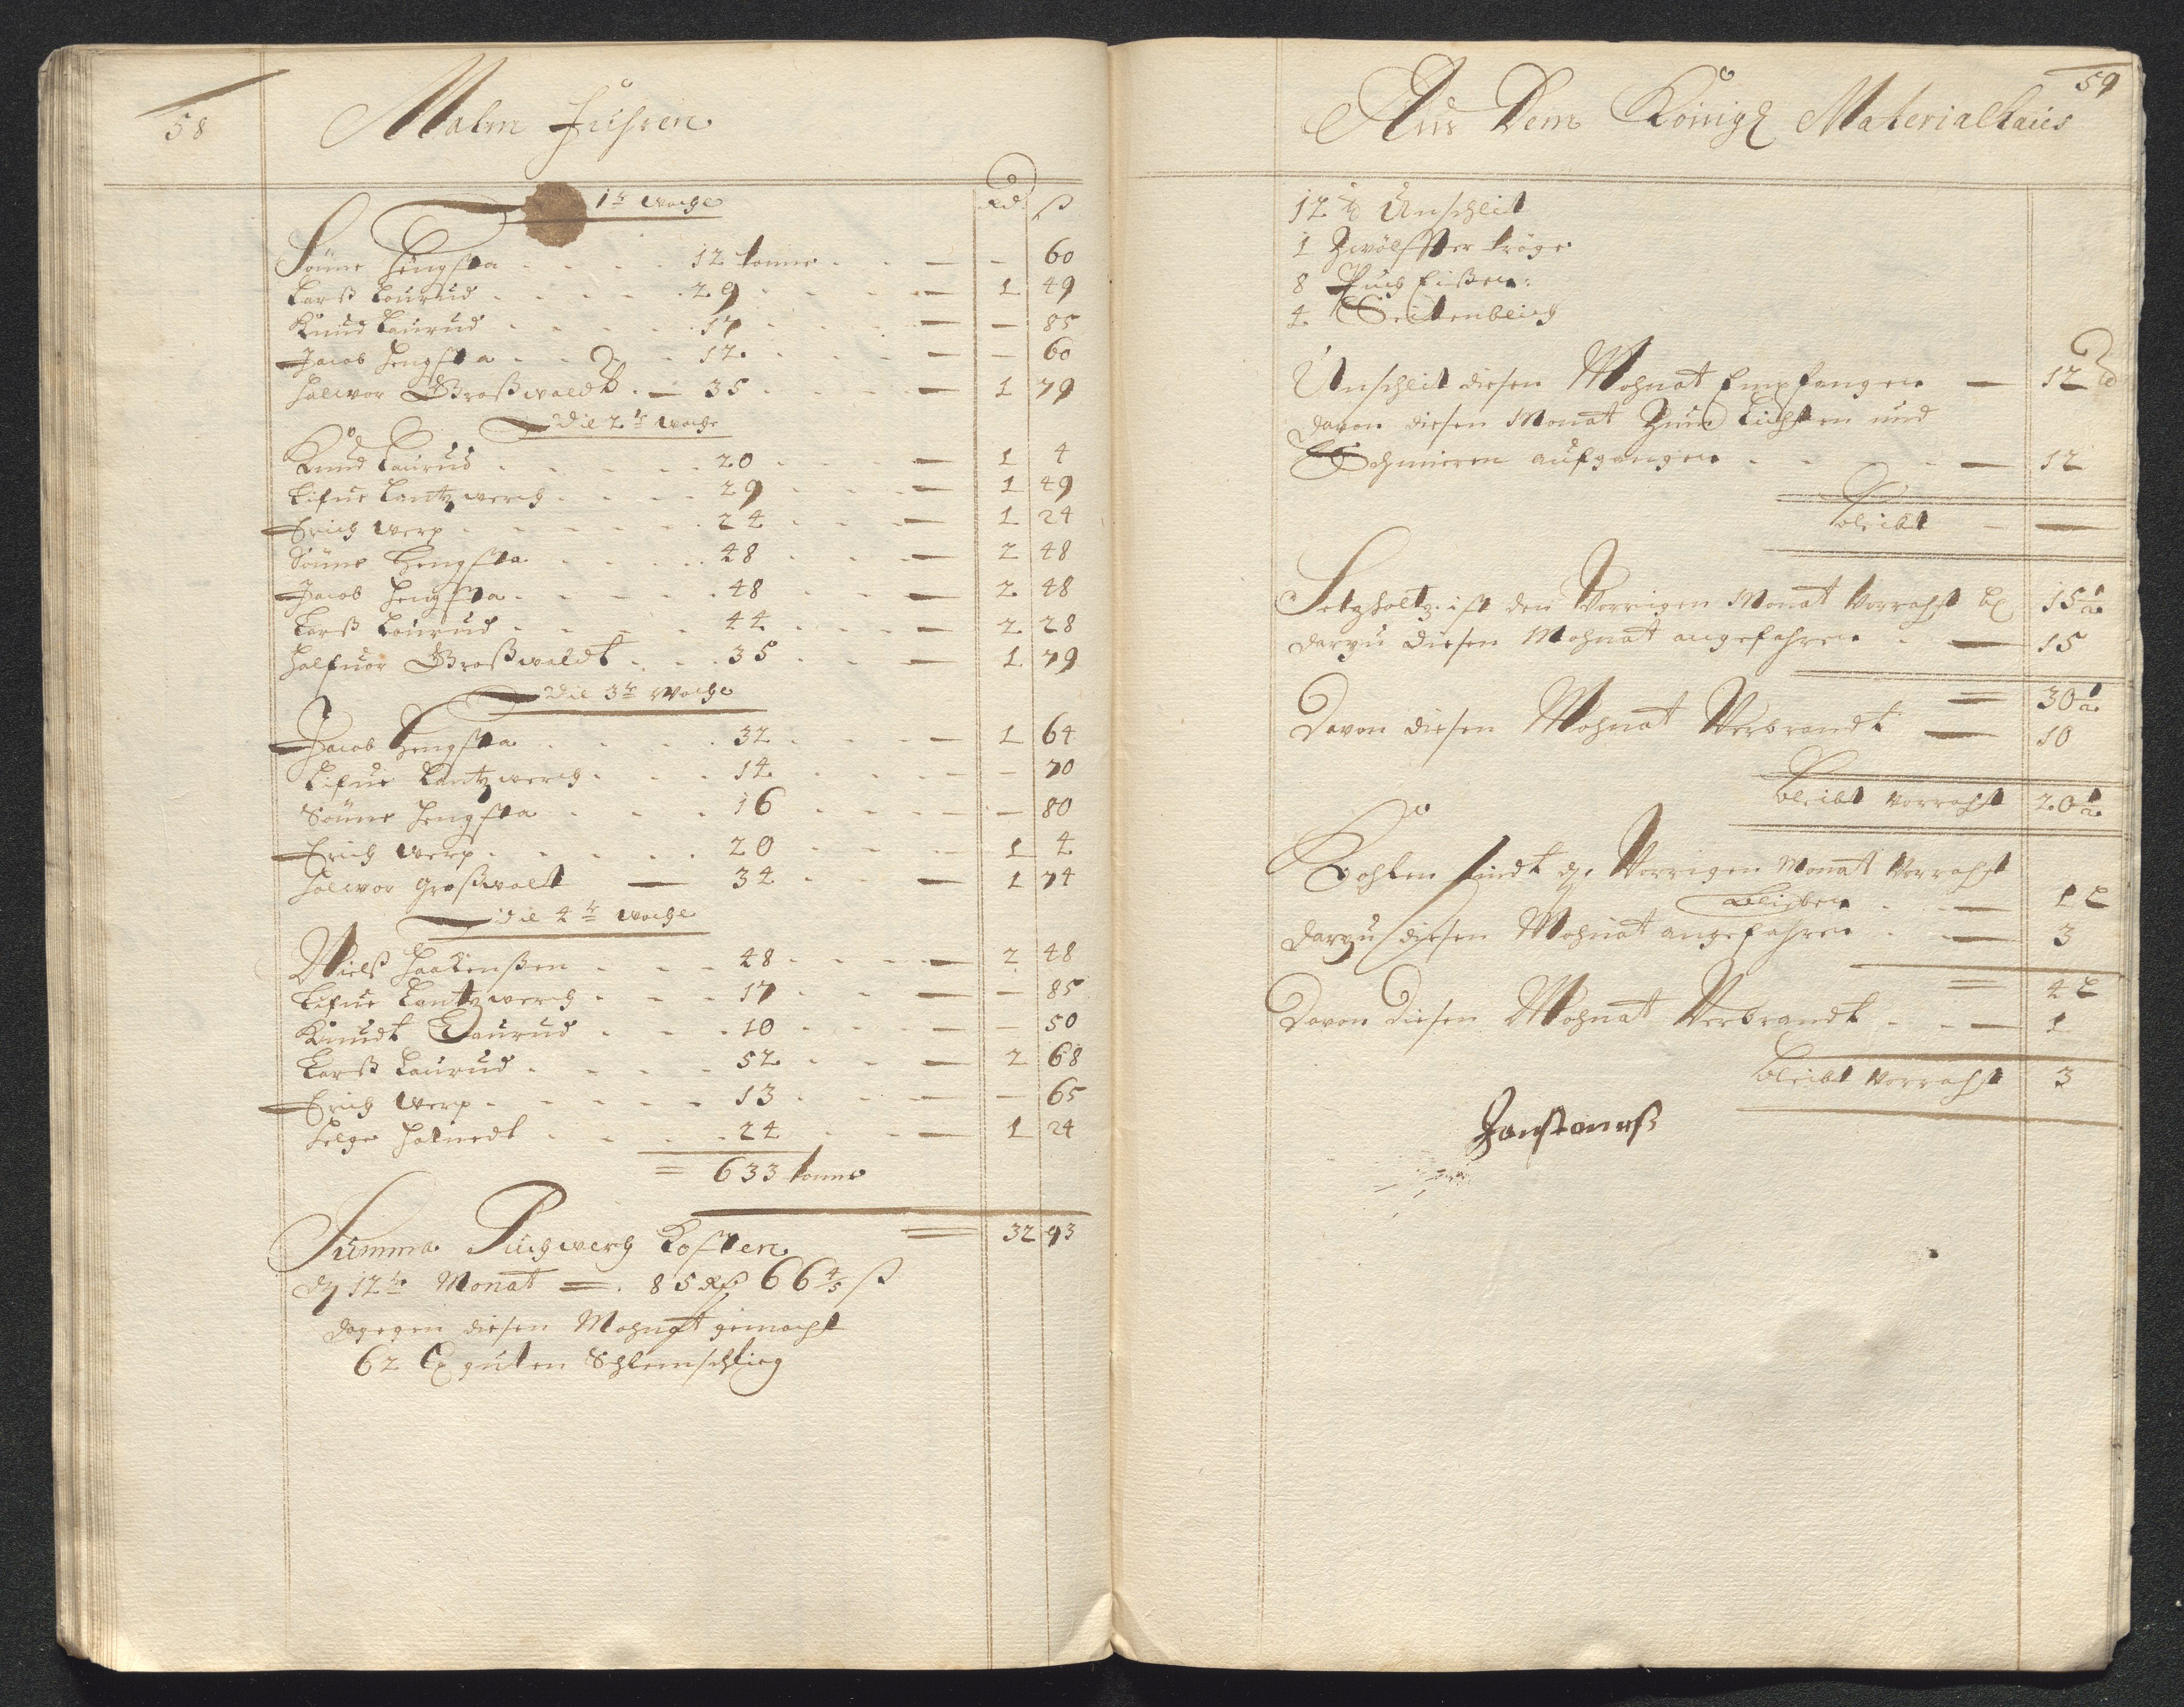 58
Malm Fuhren
Rd ß
1te woche
Sönne Hengsta 12 tonne — 60
Larß Laurud 29 1 49
Knud Laurud 17 — 85
Jacob Hengsta 12 — 60
Halwor Großwaldt 35 1 79
Die 2te woche
Knud Laurud 20 1 4
Lifue Lantzwerch 29 1 49
Erich Werp 24 1 24
Sönne Hengsta 48 2 48
Jacob Hengsta 48 2 48
Larß Laurud 44 2 28
Halfuor Großwaldt 35 1 79
Die 3te Woche
Jacob Hengsta 32 1 64
Lifue Lantzwerch 14 — 70
Sönne Hengsta 16 — 80
Erich Werp 20 1 4
Halwor Großwalt 34 1 74
Die 4te woche
Nielß Haakenßen 48 2 48
Lifue Lantzwerch 17 — 85
Knudt Laurud 10 — 50
Larß Laurud 52 2 68
Erich Werp 13 — 65
Helge 24 1 24
= 633 tonne
Summa Puchwerch Kosten = 32 93
12te Monat = 85 Rd 66 4/5 ß
dagegen diesen Mohnat gemacht
62 guten Schlemschlieg
59
Aus Dem Königl Materialhaus
12 ℔ Unschleit
1 Zwölffter tröge
8 Puch Eißen:
4 Seitenblech
Unschleit diesen Mohnat Empfangen — 12 ℔
davon diesen Monat Zum Lichten und
Schmieren aufgangen — 12
bleibt — —
Setzholtz ist den Vorrigen Monat Vorraht 15
darzu diesen Mohnat angefahren — 15
= 30
Davon diesen Mohnat Verbrandt — 10
bleibt Vorraht 20
Kohlen sindt Vorrigen Monat Vorraht
blieben — 1 L
darzu diesen Mohnat angefahren — 3
= 4 L
Davon diesen Mohnat Verbrandt — 1
bleibt Vorraht 3